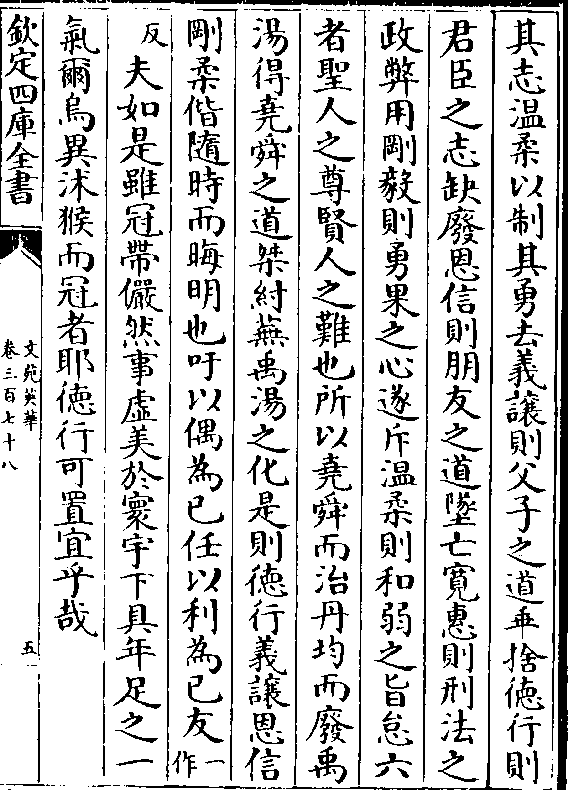 其志温柔以制其勇去義讓則父子之道乖捨徳行則
君臣之志缺廢恩信則朋友之道墜亡寛惠則刑法之
政弊用剛毅則勇果之心遂斥温柔則和弱之旨怠六
者聖人之尊賢人之難也所以堯舜而治丹均而廢禹
湯得堯舜之道桀紂蕪禹湯之化是則徳行義讓恩信
剛柔偕隨時而晦明也吁以偶為已任以利為已友一作
反夫如是雖冠帶儼然事虚美於寰宇下具年足之一
氣爾烏異沭猴而冠者耶徳行可置宜乎哉
欽定四庫全書
文苑英華
卷三百七十八
五